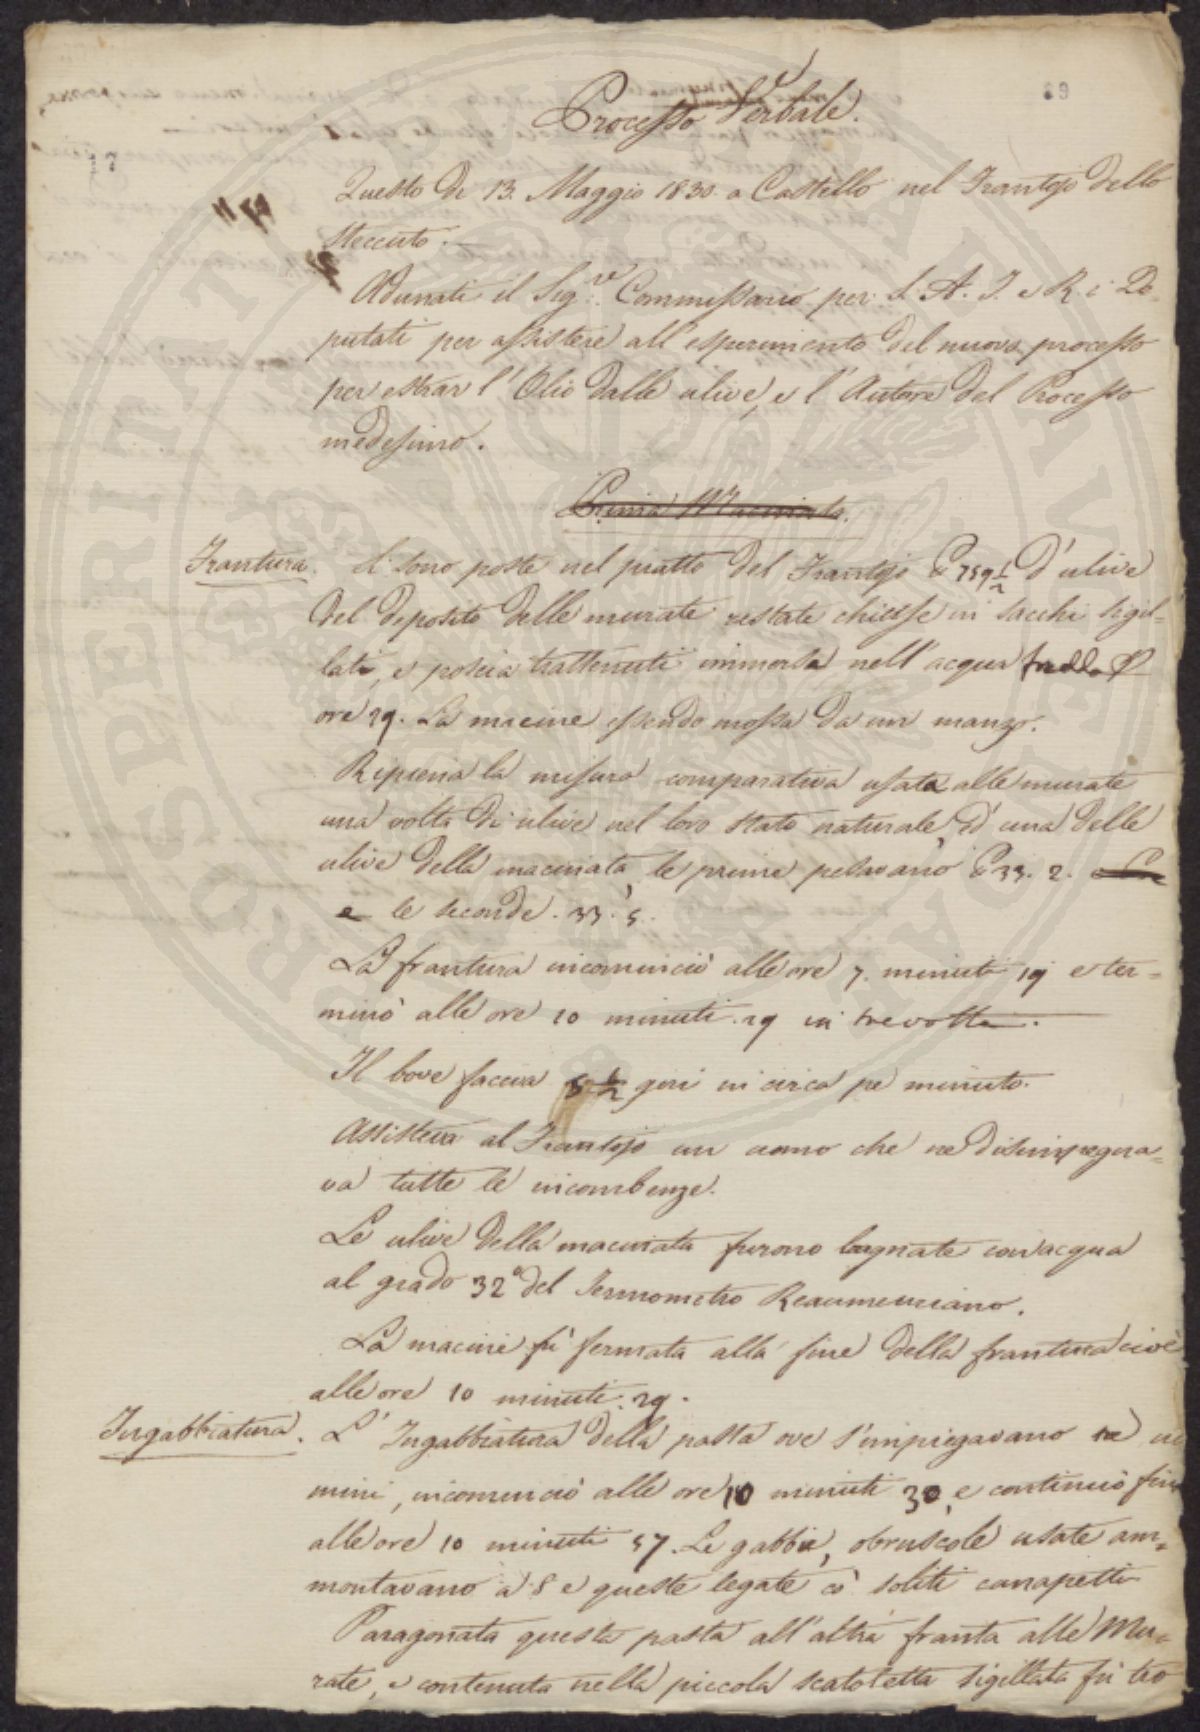 89
Processo Verbale.
17
Questo dì 13. Maggio 1830. a Castello nel Frantojo dello
Steccuto.
Adunati il Sig.re Commissario per S. A. I. e R. i De-
putati per assistere all'esperimento del nuovo processo
per estrar l'Olio dalle ulive, e l'Autore del Processo
medesimo.
Prima Macinata.
Frantura. Si sono poste nel piatto del Frantojo 759 1/2 d'ulive
del deposito delle murate restate chiuse in sacchi sigil-
lati, e poscia trattenuti immersa nell'acqua fredda P
ore 29. La macine essendo mossa da un manzo.
Ripiena la misura comparativa usata alle murate
una volta di ulive nel loro stato naturale, ed una delle
ulive della macinata, le prime pesavano 33. 2.
e le seconde. 33. 5.
La frantura incominciò alle ore 7. minuti 19 e ter-
minò alle ore 10 minuti. 29 in tre volte.
Il bove faceva 5 1/2 giri in circa pe minuto.
Assisteva al Frantojo un uomo che ne disimpegna-
va tutte le incombenze.
Le ulive della macinata furono bagnate con acqua
al grado 32° del Termometro Reaumeuriano.
La macine fù fermata alla fine della frantura cioè
alle ore 10 minuti. 29.
Ingabbiatura. L'Ingabbiatura della pasta ove s'impiegavano
mini, incominciò alle ore 10 minuti 30, e continuò fin
alle ore 10 minuti 57. Le gabbie, o bruscole usate am-
montavano a 8 e queste legate cò soliti canapetti
Paragonata questa pasta all'altra franta alle Mu-
rate, e contenuta nella piccola scatoletta sigillata fù tro
PROSPERITATI PUBLICAE AUGENDAE